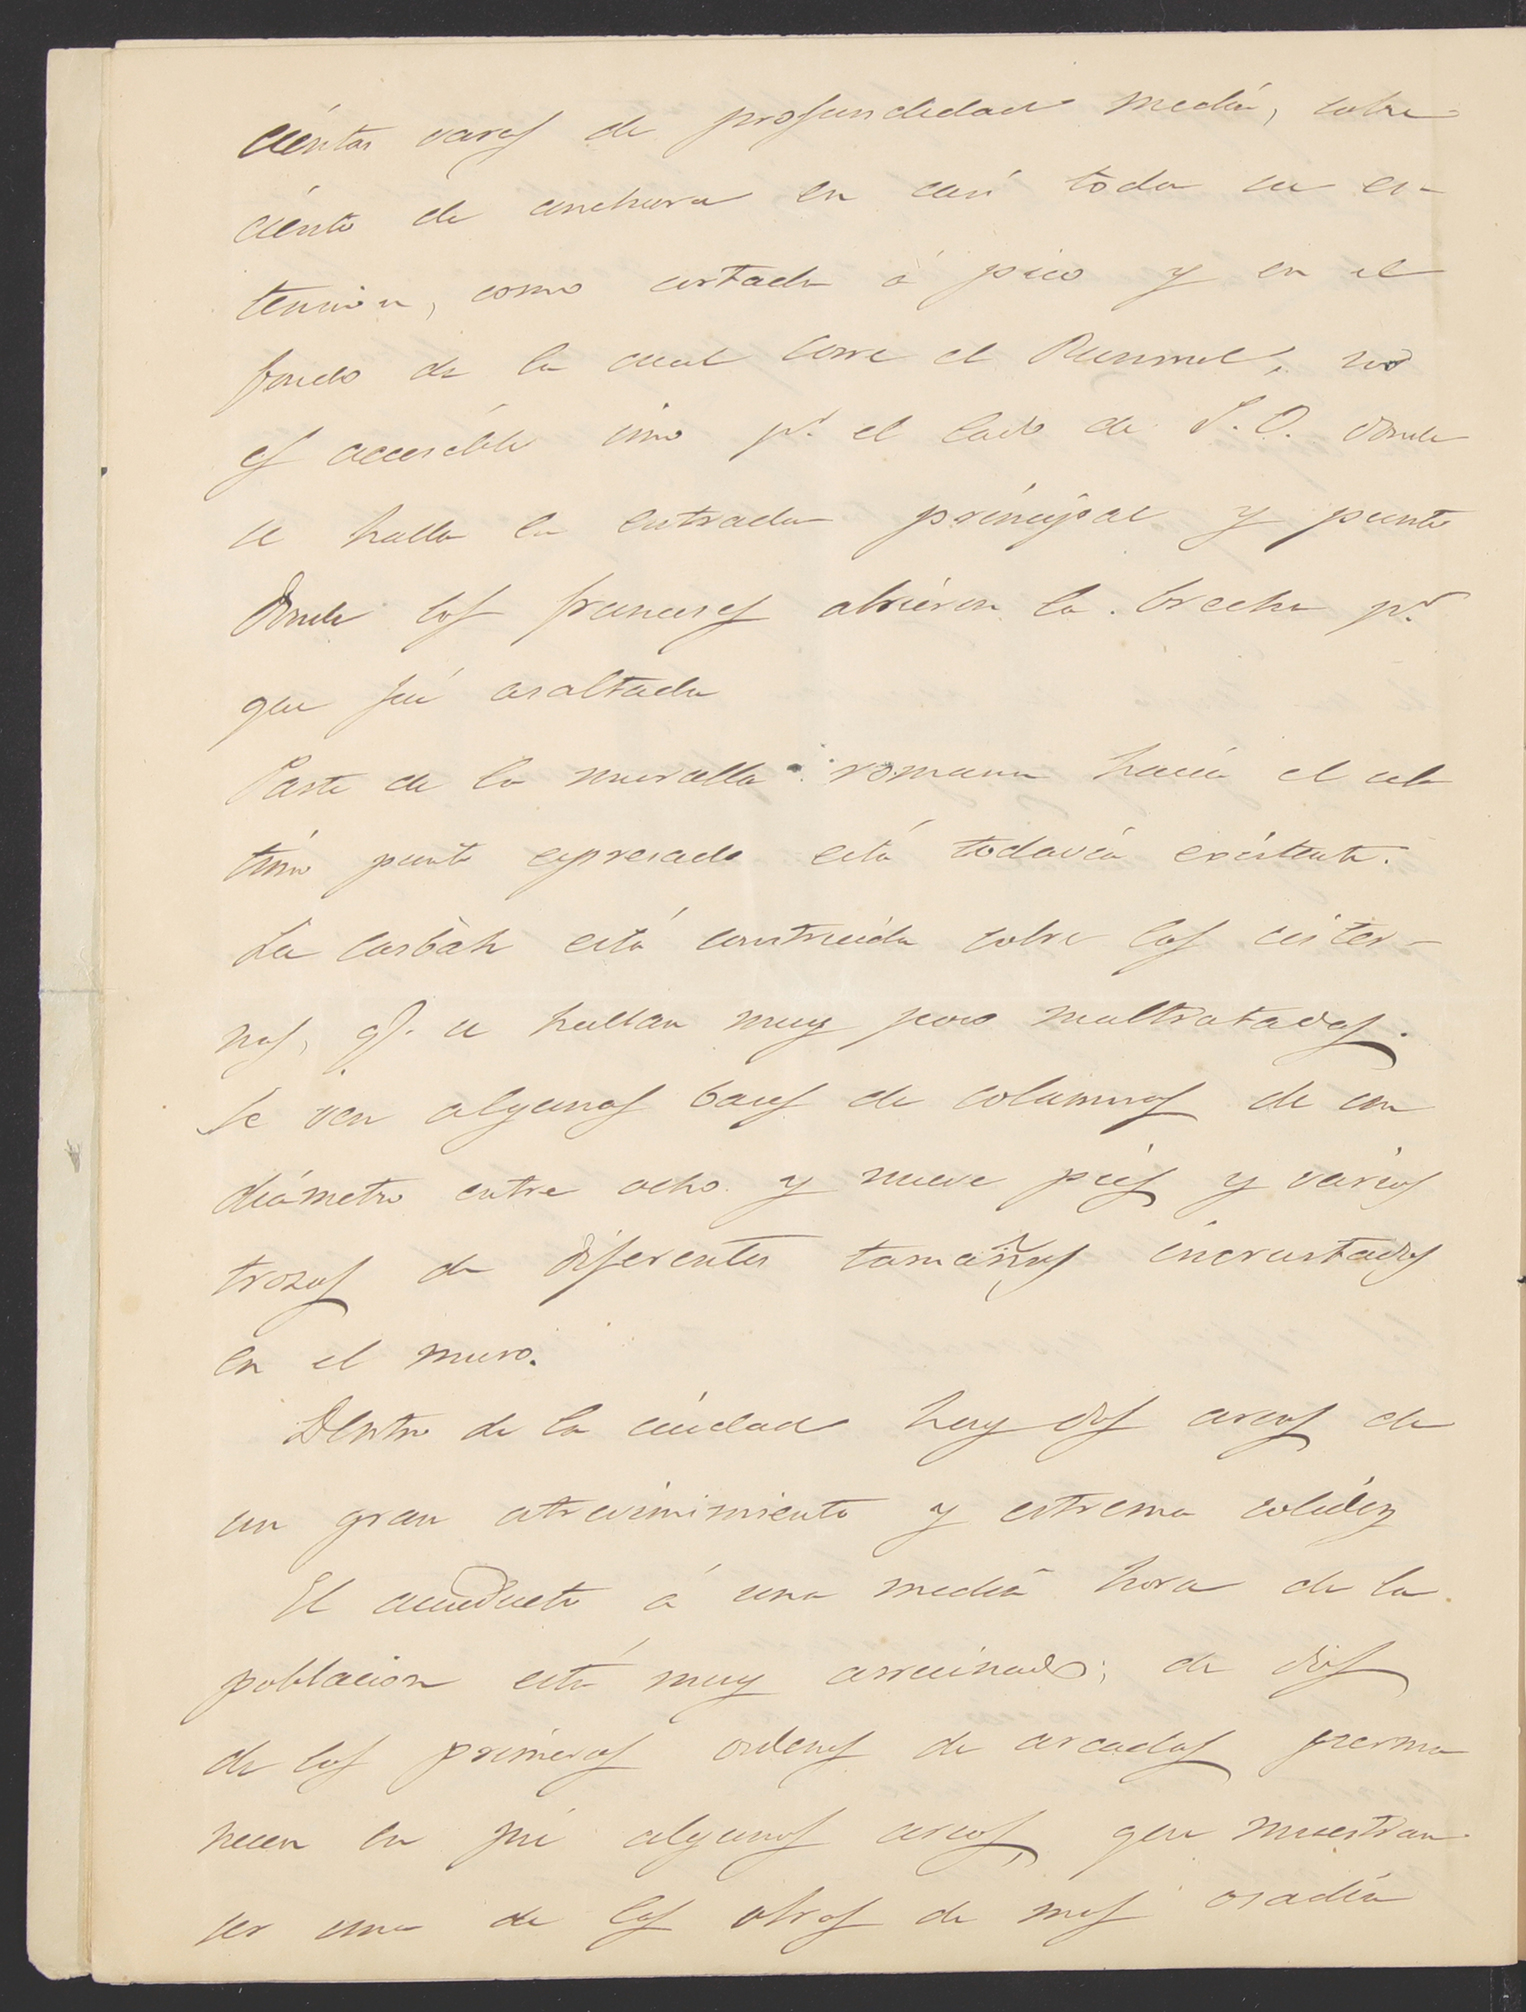 cientas varas de profundidad média, sobre
ciento de anchura en casi toda su es-
tension, como cortada á pico y en el
fondo de la cual corre el Rummel, no
es accesible sino pr. el lado de S.O. donde
se halla la entrada principal y punto
donde los franceses abrieron la brecha pr.
que fué asaltada
Parte de la muralla romana hacia el ul
timo punto espresado está todavía existente.
La casbah está construida sobre las cister-
nas, q. se hallan muy poco maltratadas.
Se ven algunas bases de columnas de un
diámetro entre ocho y nueve piés y varios
trozos de diferentes tamaños incrustados
en el muro.
Dentro de la ciudad hay dos arcos de
un gran atrevimimiento y estrema solidez
El acueducto á una média hora de la
poblacion está muy arruinado; de dos
de los primeros ordenes de arcadas perma
necen en pié algunos arcos, que muestran
ser una de las obras de mas osadía